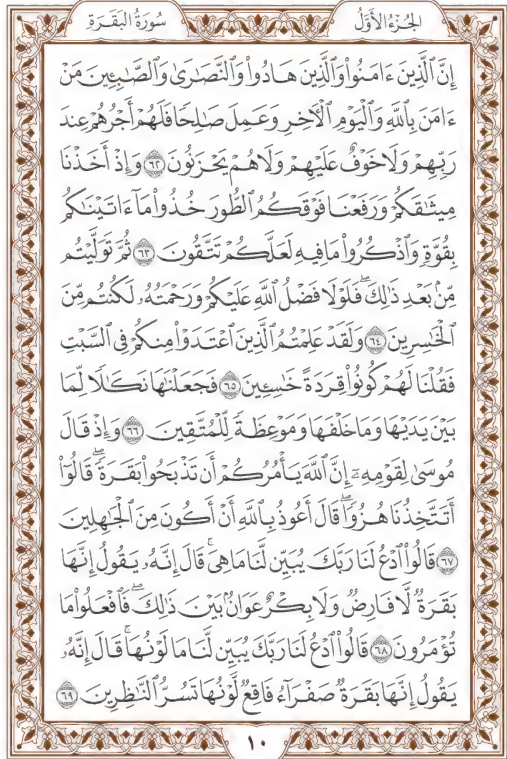 الجُزْءُ الأَوَّلُ سُورَةُ البَقَرَةِ
إِنَّ ٱلَّذِينَ ءَامَنُوا۟ وَٱلَّذِينَ هَادُوا۟ وَٱلنَّصَٰرَىٰ وَٱلصَّٰبِـِٔينَ مَنْ
ءَامَنَ بِٱللَّهِ وَٱلْيَوْمِ ٱلْـَٔاخِرِ وَعَمِلَ صَٰلِحًا فَلَهُمْ أَجْرُهُمْ عِندَ
رَبِّهِمْ وَلَا خَوْفٌ عَلَيْهِمْ وَلَا هُمْ يَحْزَنُونَ ٦٢ وَإِذْ أَخَذْنَا
مِيثَٰقَكُمْ وَرَفَعْنَا فَوْقَكُمُ ٱلطُّورَ خُذُوا۟ مَآ ءَاتَيْنَٰكُم
بِقُوَّةٍ وَٱذْكُرُوا۟ مَا فِيهِ لَعَلَّكُمْ تَتَّقُونَ ٦٣ ثُمَّ تَوَلَّيْتُم
مِّنۢ بَعْدِ ذَٰلِكَ ۖ فَلَوْلَا فَضْلُ ٱللَّهِ عَلَيْكُمْ وَرَحْمَتُهُۥ لَكُنتُم مِّنَ
ٱلْخَٰسِرِينَ ٦٤ وَلَقَدْ عَلِمْتُمُ ٱلَّذِينَ ٱعْتَدَوْا۟ مِنكُمْ فِى ٱلسَّبْتِ
فَقُلْنَا لَهُمْ كُونُوا۟ قِرَدَةً خَٰسِـِٔينَ ٦٥ فَجَعَلْنَٰهَا نَكَٰلًا لِّمَا
بَيْنَ يَدَيْهَا وَمَا خَلْفَهَا وَمَوْعِظَةً لِّلْمُتَّقِينَ ٦٦ وَإِذْ قَالَ
مُوسَىٰ لِقَوْمِهِۦٓ إِنَّ ٱللَّهَ يَأْمُرُكُمْ أَن تَذْبَحُوا۟ بَقَرَةً ۖ قَالُوٓا۟
أَتَتَّخِذُنَا هُزُوًا ۖ قَالَ أَعُوذُ بِٱللَّهِ أَنْ أَكُونَ مِنَ ٱلْجَٰهِلِينَ
٦٧ قَالُوا۟ ٱدْعُ لَنَا رَبَّكَ يُبَيِّن لَّنَا مَا هِىَ ۚ قَالَ إِنَّهُۥ يَقُولُ إِنَّهَا
بَقَرَةٌ لَّا فَارِضٌ وَلَا بِكْرٌ عَوَانٌۢ بَيْنَ ذَٰلِكَ ۖ فَٱفْعَلُوا۟ مَا
تُؤْمَرُونَ ٦٨ قَالُوا۟ ٱدْعُ لَنَا رَبَّكَ يُبَيِّن لَّنَا مَا لَوْنُهَا ۚ قَالَ إِنَّهُۥ
يَقُولُ إِنَّهَا بَقَرَةٌ صَفْرَآءُ فَاقِعٌ لَّوْنُهَا تَسُرُّ ٱلنَّٰظِرِينَ ٦٩
١٠